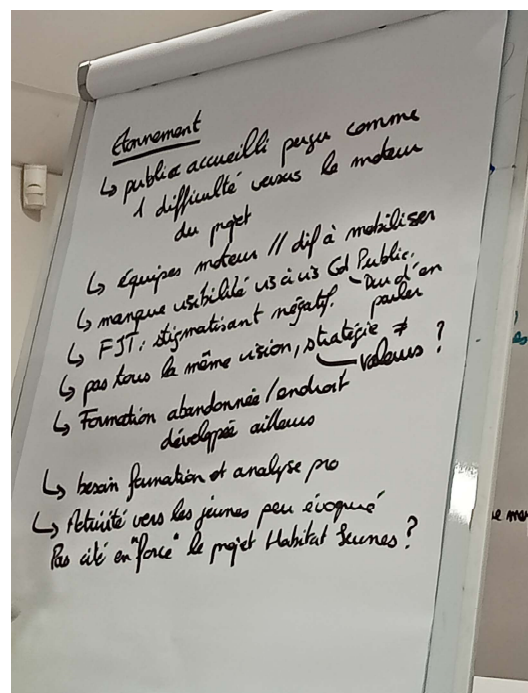 Etonnement
↳ public accueilli perçu comme
1 difficulté versus le moteur
du projet
↳ équipes moteur // dif à mobiliser
↳ manque visibilité vis à vis Gd Public.
↳ FJT : stigmatisant négatif. - Dur d'en
parler
↳ pas tous la même vision, stratégie ≠
valeurs ?
↳ Formation abandonnée / endroit
développée ailleurs
↳ besoin formation et analyse pro
↳ Activité vers les jeunes peu évoqué
Pas cité en "force" le projet Habitat Jeunes ?